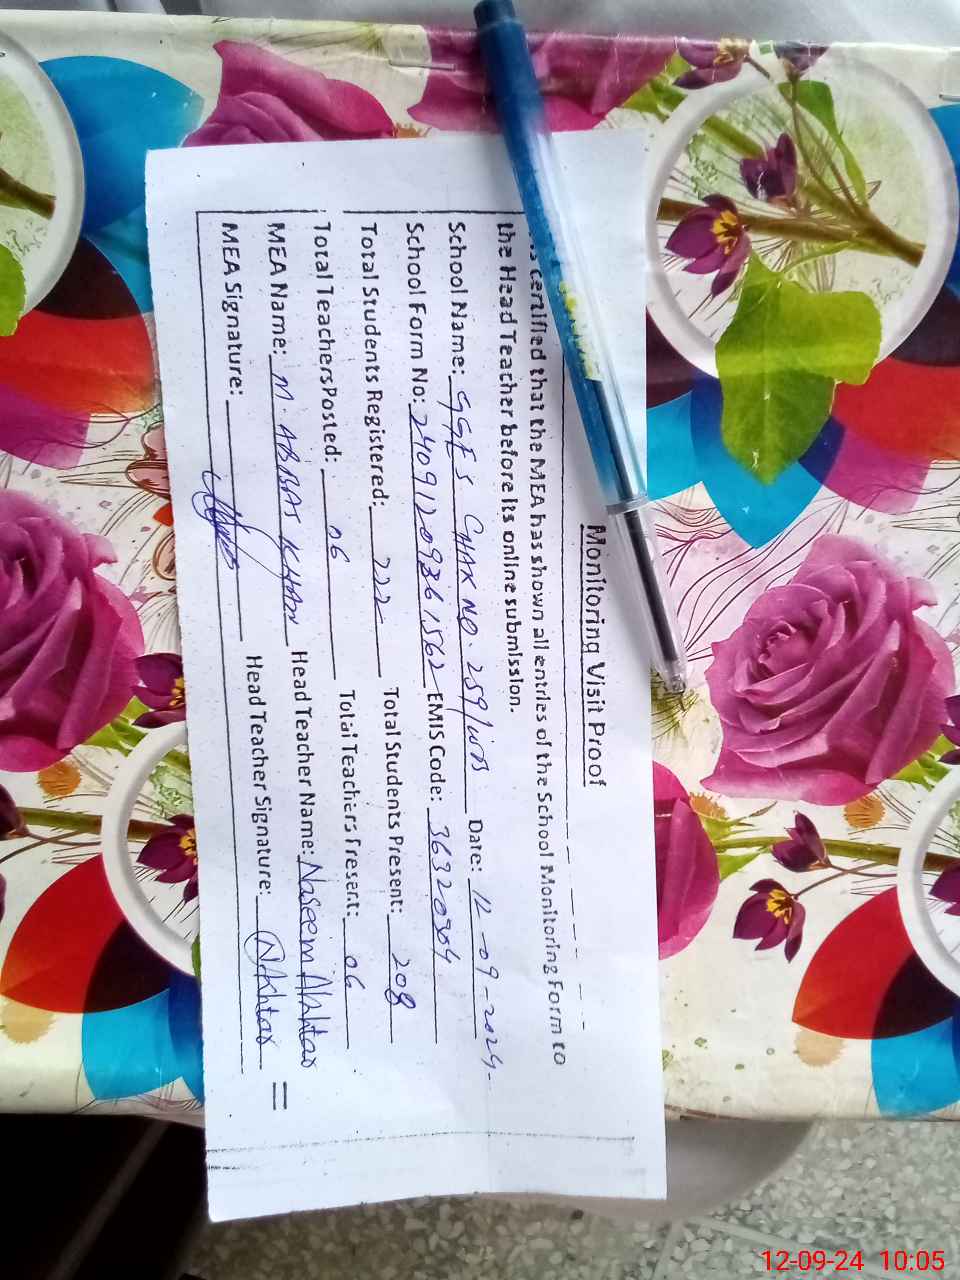 Monitoring Visit Proof
certified that the MEA has shown all entries of the School Monitoring Form to
the Head Teacher before its online submission.
School Name: GGES CHAK NO. 259/WB Date: 12-09-2024-
School Form No: 24091209361562 EMIS Code: 36320304
Total Students Registered: 222 Total Students Present: 208
Total Teachers Posted: 06 Total Teachers Present: 06
MEA Name: M. ABBAS KHAN Head Teacher Name: Naseem Akhtar
MEA Signature: Head Teacher Signature: N.Akhtar
12-09-24 10:05